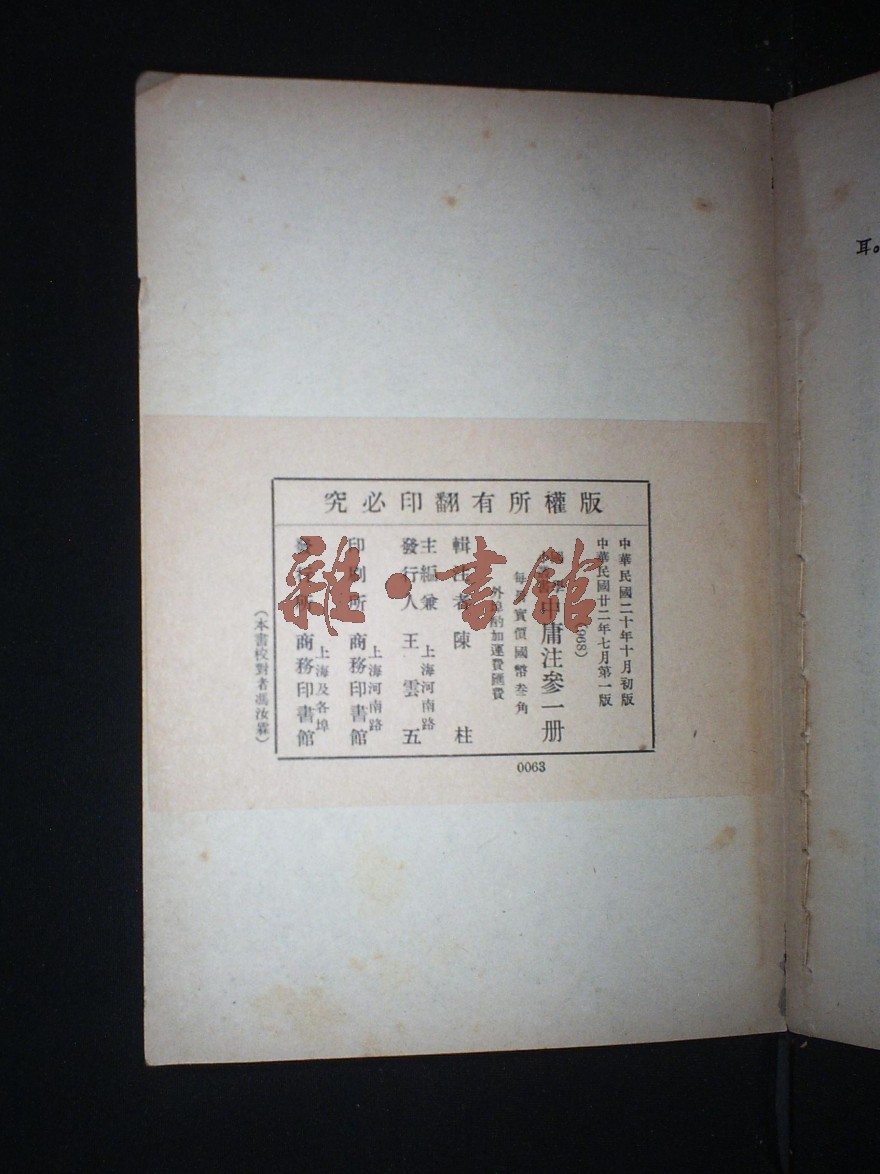 耳。
版權所有翻印必究
中華民國二十年十月初版
中華民國廿二年七月第一版
中庸注參一册
實價國幣叁角
外埠酌加運費匯費
輯注者 陳柱
主編兼
發行人 王雲五
上海河南路
印刷所 商務印書館
上海河南路
商務印書館
上海及各埠
(本書校對者馮汝霖)
0063
雜·書館